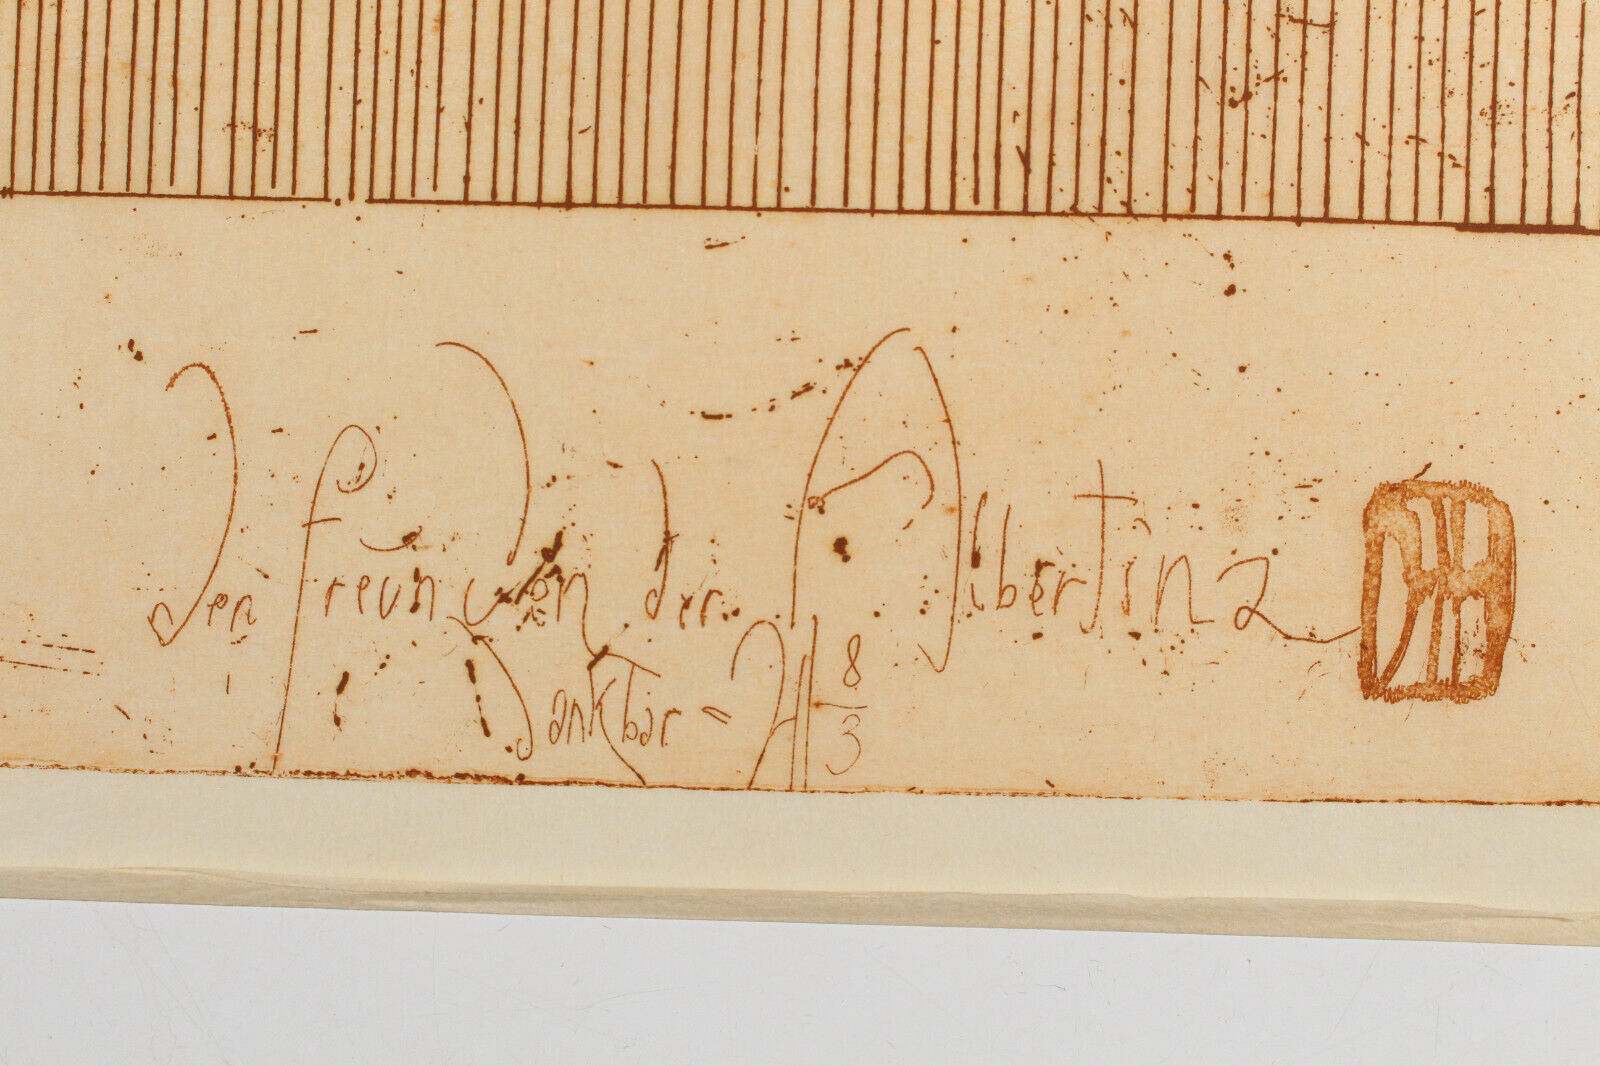 Den freunden der Albertina
Dankbar = 
8
3